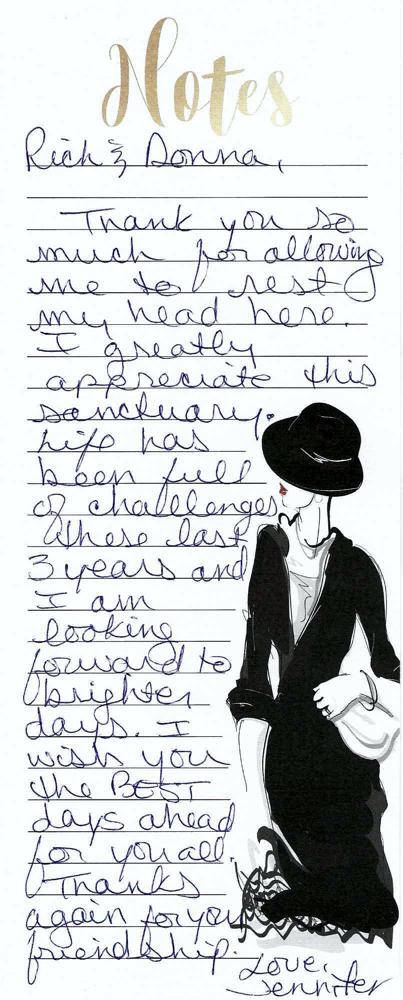 Notes
Rich & Donna,
Thank you so
much for allowing
me to rest
my head here.
I greatly
appreciate this
sanctuary.
Life has
been full
of challenges
these last
3 years and
I am
looking
forward to
brighter
days. I
wish you
the BEST
days ahead
for you all.
Thanks
again for your
friendship.
Love,
Jennifer